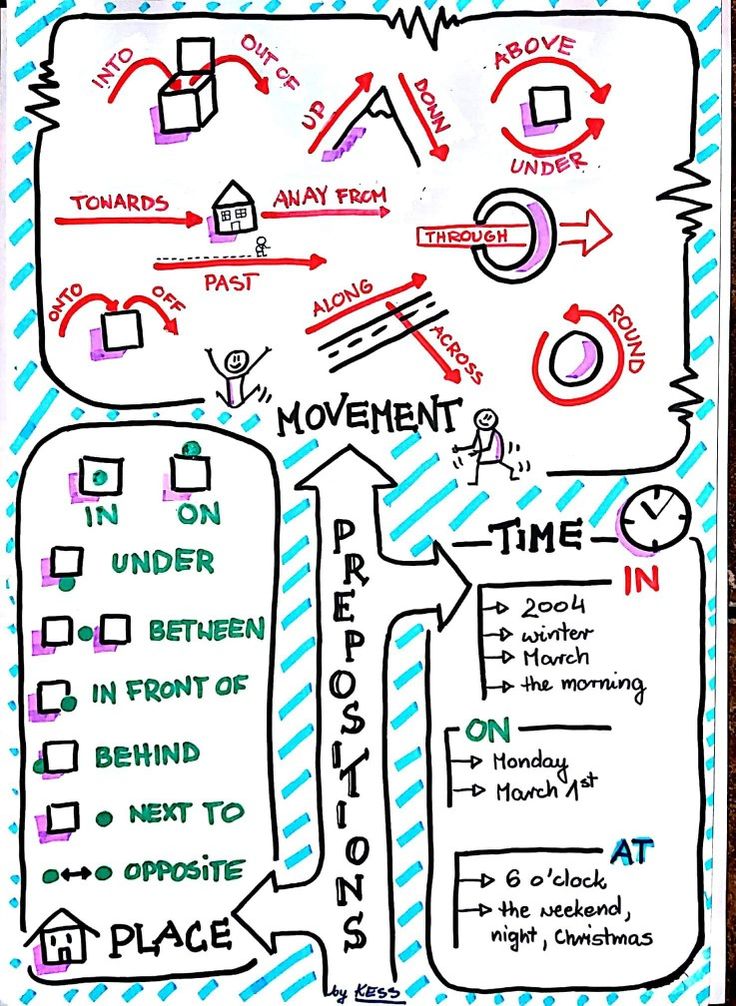 INTO
OUT OF
UP
DOWN
ABOVE
UNDER
TOWARDS
AWAY FROM
THROUGH
PAST
ONTO
OFF
ALONG
ACROSS
ROUND
MOVEMENT
PREPOSITIONS
IN
ON
UNDER
BETWEEN
IN FRONT OF
BEHIND
NEXT TO
OPPOSITE
PLACE
TIME
IN
2004
winter
March
the morning
ON
Monday
March 1st
AT
6 o'clock
the weekend,
night, Christmas
by KESS